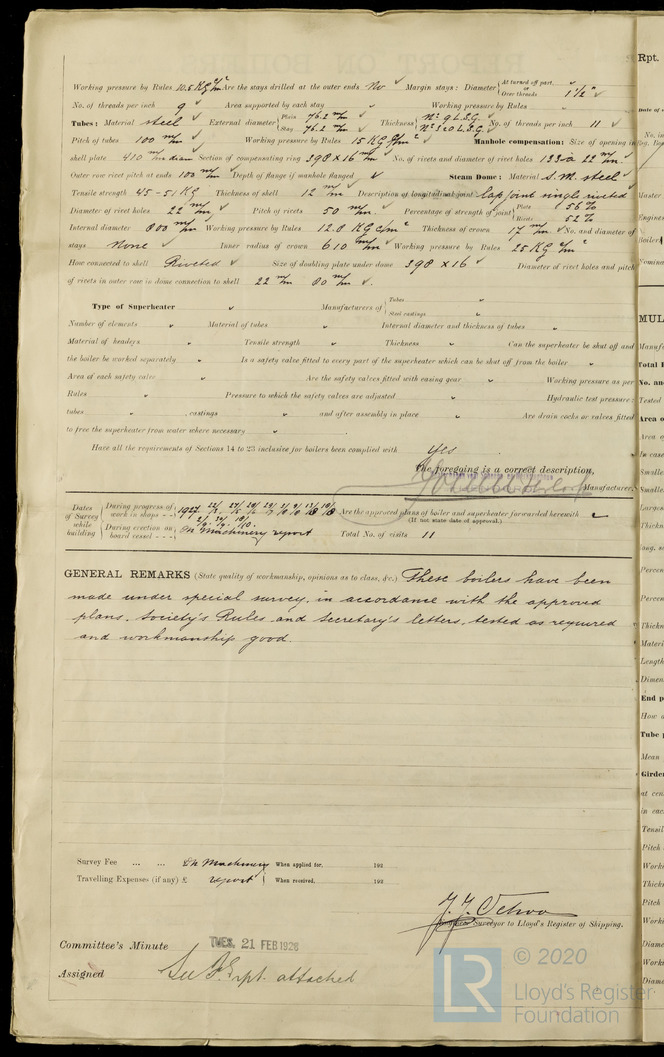 Working pressure by Rules 10.5 KG Are the stays drilled at the outer ends No Margin stays: Diameter { At turned off part, or Over threads 1 1/2"
No. of threads per inch 9 Area supported by each stay Working pressure by Rules
Tubes: Material steel External diameter { Plain 76.2 m/m Stay 76.2 m/m Thickness { No. of threads per inch 11
Pitch of tubes 100 m/m Working pressure by Rules 15 KG Manhole compensation: Size of opening in
shell plate 410 m/m diam Section of compensating ring 390 x 16 m/m No. of rivets and diameter of rivet holes 22 m/m
Outer row rivet pitch at ends 100 m/m Depth of flange if manhole flanged Steam Dome: Material S.M. steel
Tensile strength 45-51 KG Thickness of shell 12 m/m Description of longitudinal joint lap joint single riveted
Diameter of rivet holes 22 m/m Pitch of rivets 50 m/m Percentage of strength of joint { Plate 56 % Rivets 52 %
Internal diameter 800 m/m Working pressure by Rules 12.8 KG Thickness of crown 17 m/m No. and diameter of
stays None Inner radius of crown 610 m/m Working pressure by Rules 25 KG
How connected to shell Riveted Size of doubling plate under dome 390 x 16 Diameter of rivet holes and pitch
of rivets in outer row in dome connection to shell 22 m/m 80 m/m
Type of Superheater Manufacturers of { Tubes Steel castings
Number of elements Material of tubes Internal diameter and thickness of tubes
Material of headers Tensile strength Thickness Can the superheater be shut off and
the boiler be worked separately Is a safety valve fitted to every part of the superheater which can be shut off from the boiler
Area of each safety valve Are the safety valves fitted with easing gear Working pressure as per
Rules Pressure to which the safety valves are adjusted Hydraulic test pressure:
tubes , castings and after assembly in place Are drain cocks or valves fitted
to free the superheater from water where necessary
Have all the requirements of Sections 14 to 23 inclusive for boilers been complied with Yes
The foregoing is a correct description,
Manufacturer.
Dates of Survey while building { During progress of work in shops - - 1927 Are the approved plans of boiler and superheater forwarded herewith
(If not state date of approval.)
During erection on board vessel - - - machinery report Total No. of visits 11
GENERAL REMARKS (State quality of workmanship, opinions as to class, &c.) These boilers have been
made under special survey, in accordance with the approved
plans, Society's Rules and Secretary's letters, tested as required
and workmanship good.
Survey Fee ... ... Machinery When applied for, 192
Travelling Expenses (if any) £ report When received, 192
Surveyor to Lloyd's Register of Shipping.
Committee's Minute TUES. 21 FEB 1928
Assigned See rpt. attached
© 2020
LR Lloyd's Register
Foundation
Rpt.
Date of
No. in
Reg. Book
Master
Engines
Boilers
Nominal
MUL
Manufa
Total H
No. and
Tested
Area of
Area o
In case
Smalle
Smalle
Larges
Thickn
long. s
Percen
Percen
Thickn
Materi
Length
Dimen
End p
How a
Tube p
Mean
Girder
at cen
in eac
Tensil
Pitch
Worki
Thickn
Pitch
Worki
Diame
Worki
Diame